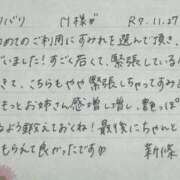 バリ M様 R7.11.27
めてのご利用にすみれを選んで頂き、
います！すごく若くて、緊張している
きて、こちらもやや緊張しちゃってすみま
もっとお姉さん感増し増し、艶っぽ
るわ覚えておくね！最後にちゃんと
もらえて良かったです
新條